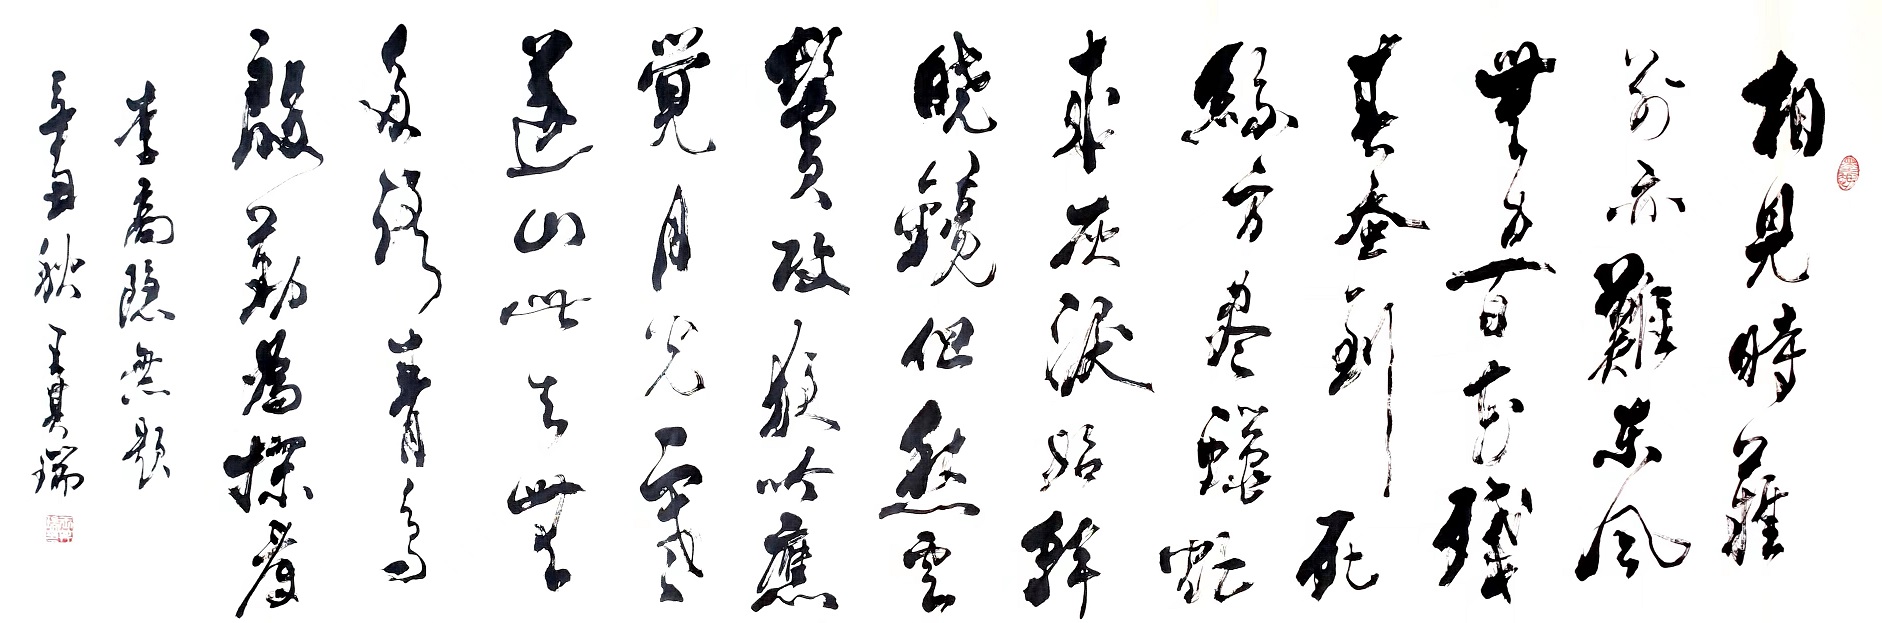 相見時難
別亦難東風
無力百花殘
春蚕到死
絲方尽蠟炬
成灰淚始乾
曉鏡但愁雲
鬢改夜吟應
覺月光寒
蓬山此去無
多路青鳥
殷勤為探看
李商隐無題
辛丑秋王其瑞